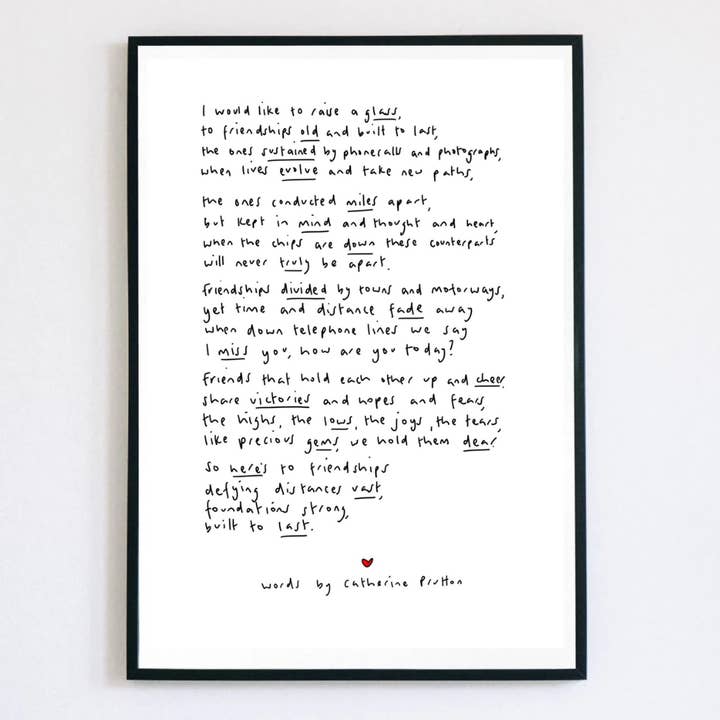 I would like to raise a glass,
to friendships old and built to last,
the ones sustained by phonecalls and photographs,
when lives evolve and take new paths,
the ones conducted miles apart,
but kept in mind and thought and heart,
when the chips are down these counterparts
will never truly be apart.
friendships divided by towns and motorways,
yet time and distance fade away
when down telephone lines we say
I miss you, how are you today?
friends that hold each other up and cheer,
share victories and hopes and fears,
the highs, the lows, the joys, the tears,
like precious gems, we hold them dear.
So here's to friendships
defying distances vast,
foundations strong,
built to last.
words by Catherine Prutton